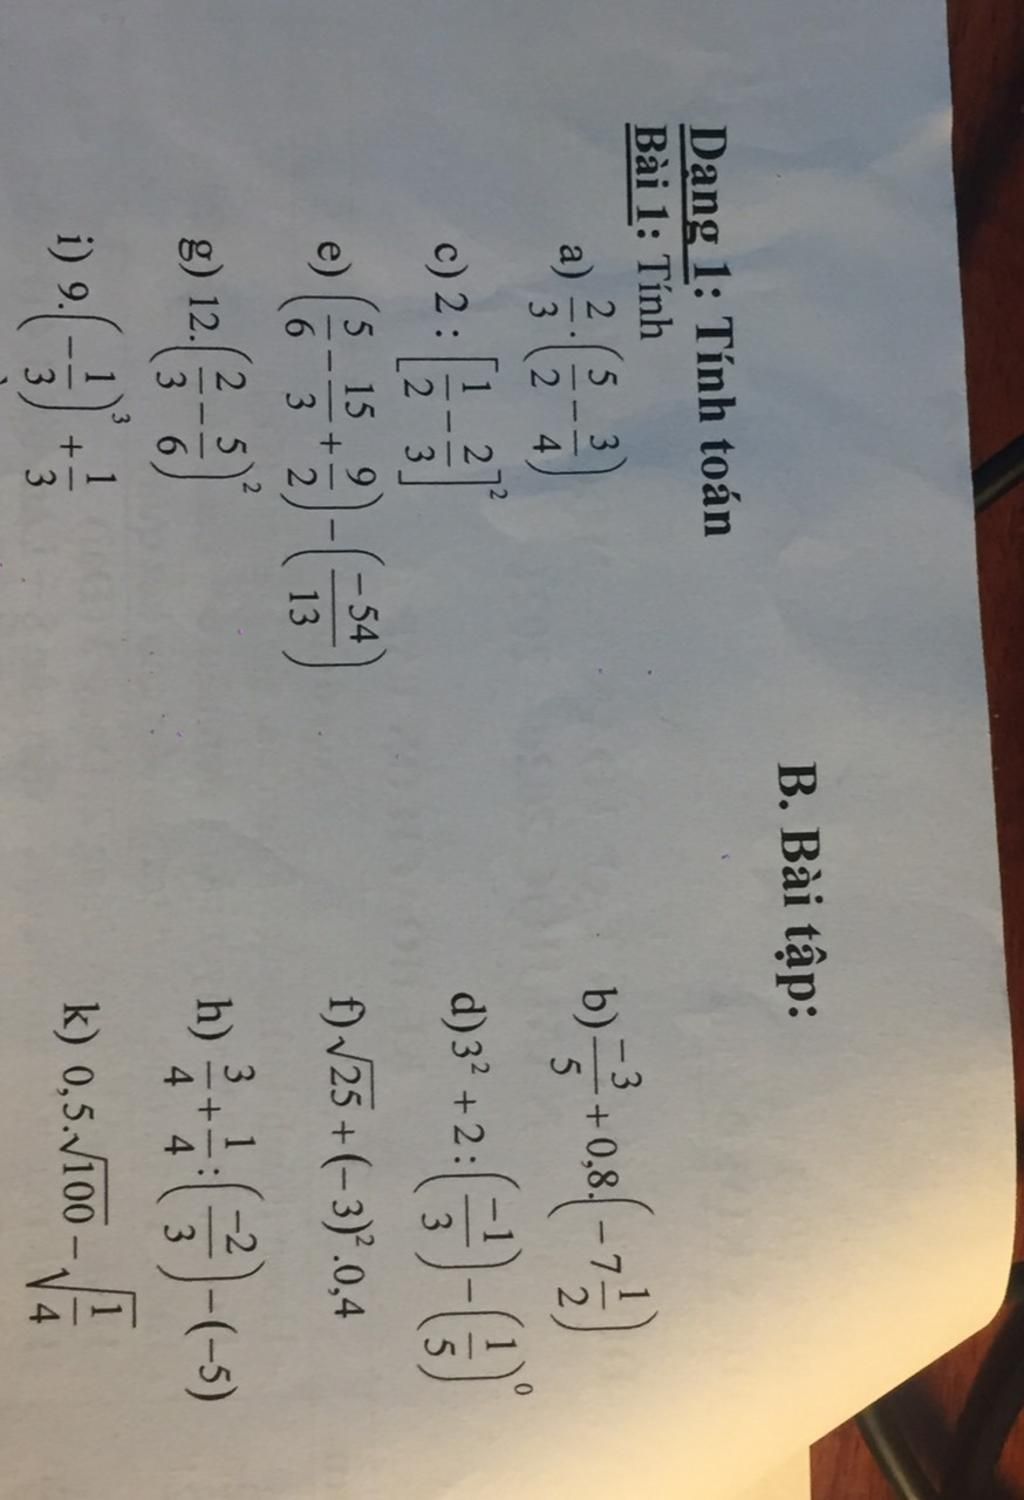 B. Bài tập:
Dạng 1: Tính toán
Bài 1: Tính
a) 2/3 . (5/2 − 3/4) b) −3/5 + 0,8.(−7 1/2)
c) 2 : [1/2 − 2/3]² d) 3² + 2 : (−1/3) − (1/5)⁰
e) (5/6 − 15/3 + 9/2) − (−54/13) f) √25 + (−3)² . 0,4
g) 12.(2/3 − 5/6)² h) 3/4 + 1/4 : (−2/3) − (−5)
i) 9.(−1/3)³ + 1/3 k) 0,5.√100 − √(1/4)